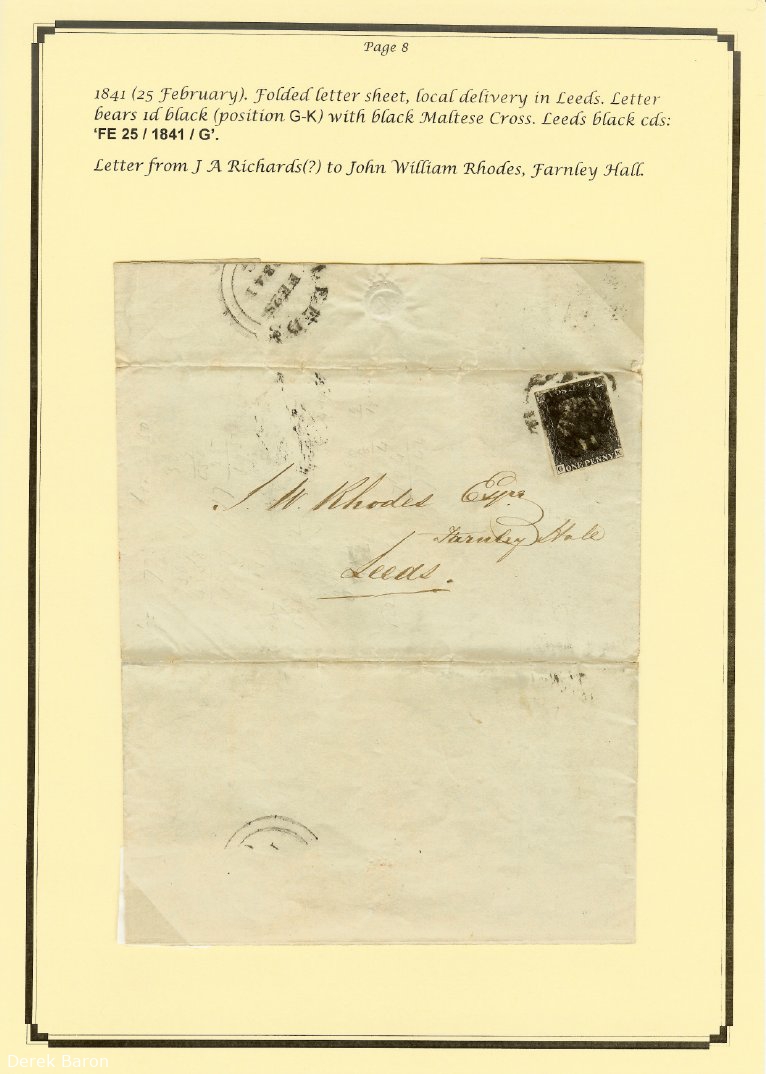 Page 8
1841 (25 February). Folded letter sheet, local delivery in Leeds. Letter
bears 1d black (position G-K) with black Maltese Cross. Leeds black cds:
‘FE 25 / 1841 / G’.
Letter from J A Richards(?) to John William Rhodes, Farnley Hall.
LEEDS
FE 25
1841
G ONE PENNY K
J. W. Rhodes Esqre
Farnley Hall
Leeds.
Derek Baron